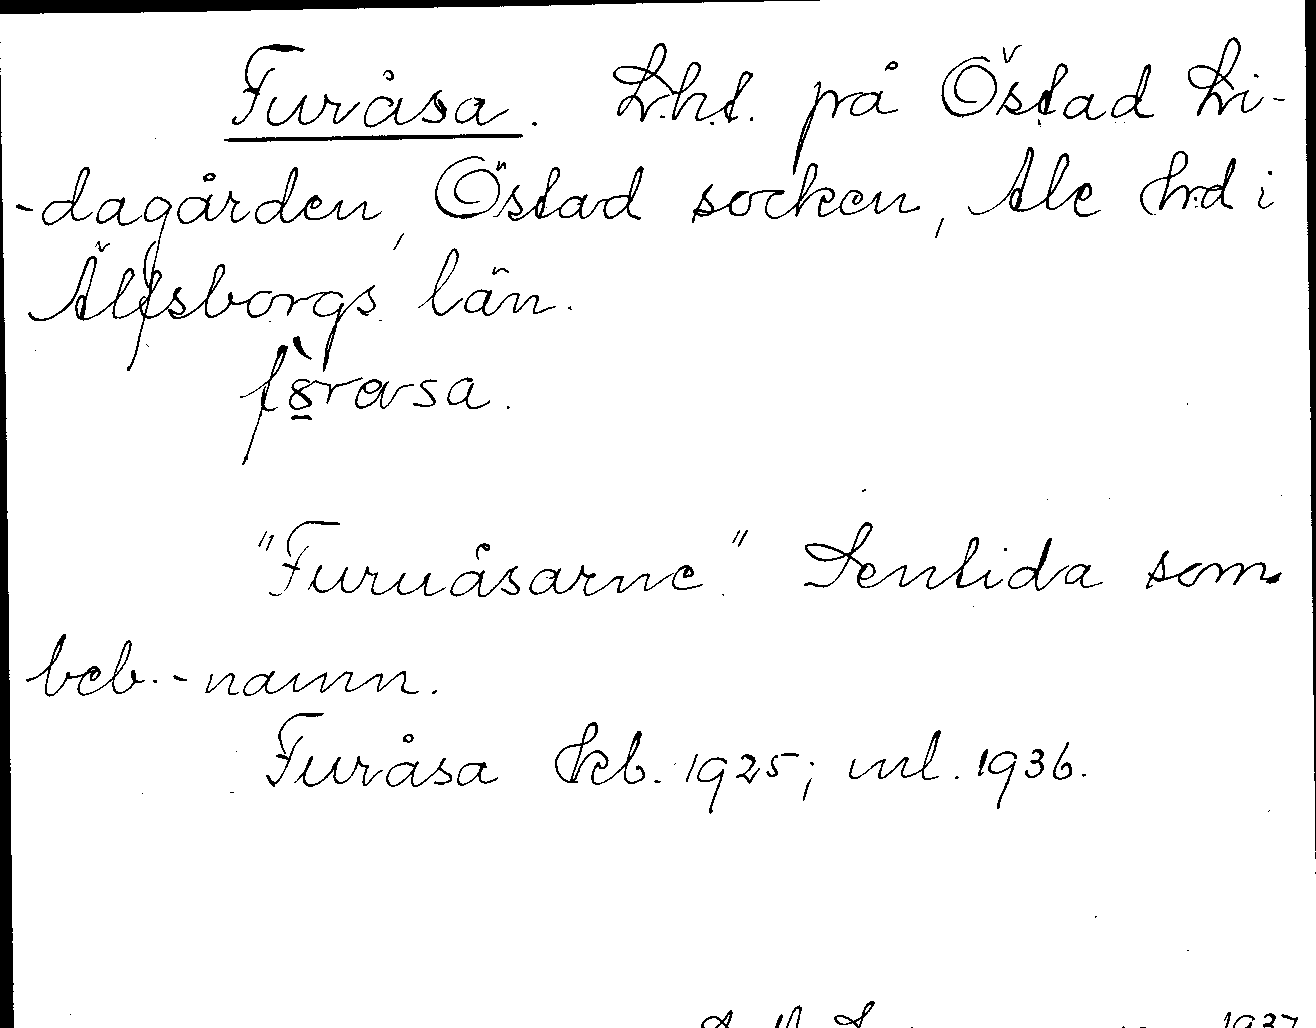 Furåsa. Lht. på Östad Li-
-dagården, Östad socken, Ale hd i
Älfsborgs län.
"Furuåsarne." Sentida som
beb.-namn.
Furåsa kb. 1925; ml. 1936.
1937